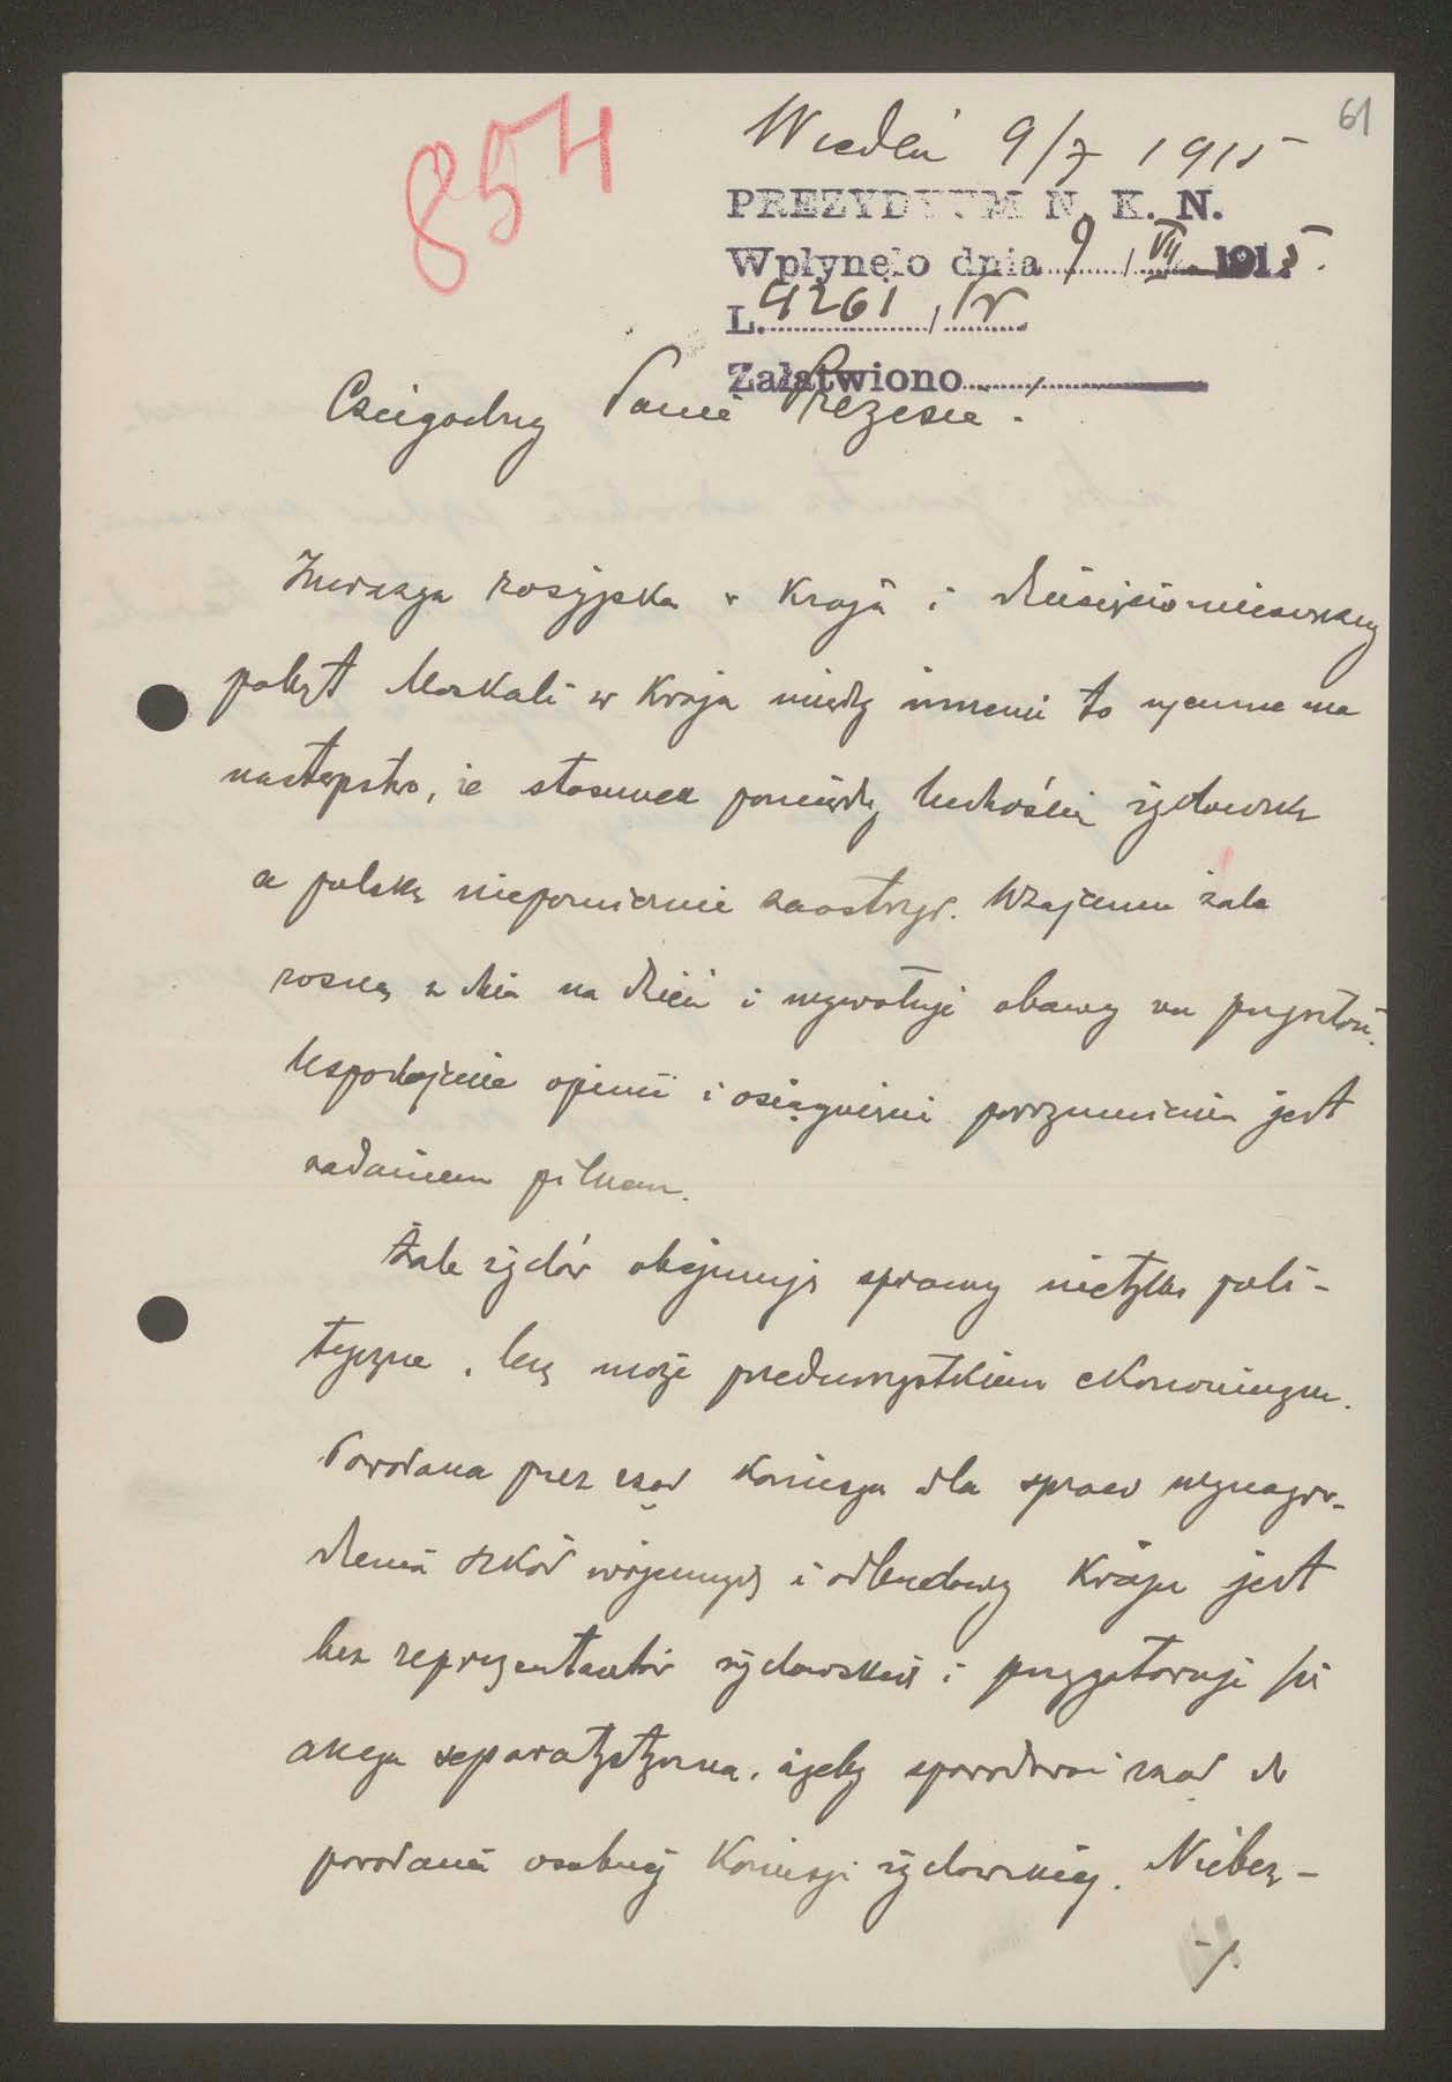 61
854
Wiedeń 9/7 1915
PREZYDYUM N. K. N.
Wpłynęło dnia 9/VII 1915.
L. 4261 / 15
Załatwiono
Czcigodny Panie Prezesie.
Inwazya rosyjska w Kraju i dziesięciomiesięczny
pobyt Moskali w Kraju między innemi to ujemne ma
następstwo, że stosunek pomiędzy ludnością żydowską
a polską niepomiernie zaostrzył. Wzajemne żale
rosną z dnia na dzień i wywołują obawy na przyszłość.
Uspokojenie opinii i osiągnięcie porozumienia jest
zadaniem pilnem.
Żale żydów obejmują sprawy nietylko poli-
tyczne, lecz może przedewszystkiem ekonomiczne.
Powołana przez rząd Komisya dla spraw wynagro-
dzenia szkód wojennych i odbudowy Kraju jest
bez reprezentantów żydowskich i przygotowuje się
akcya separatystyczna, ażeby spowodować rząd do
powołania osobnej Komisyi żydowskiej. Niebez-
-/.